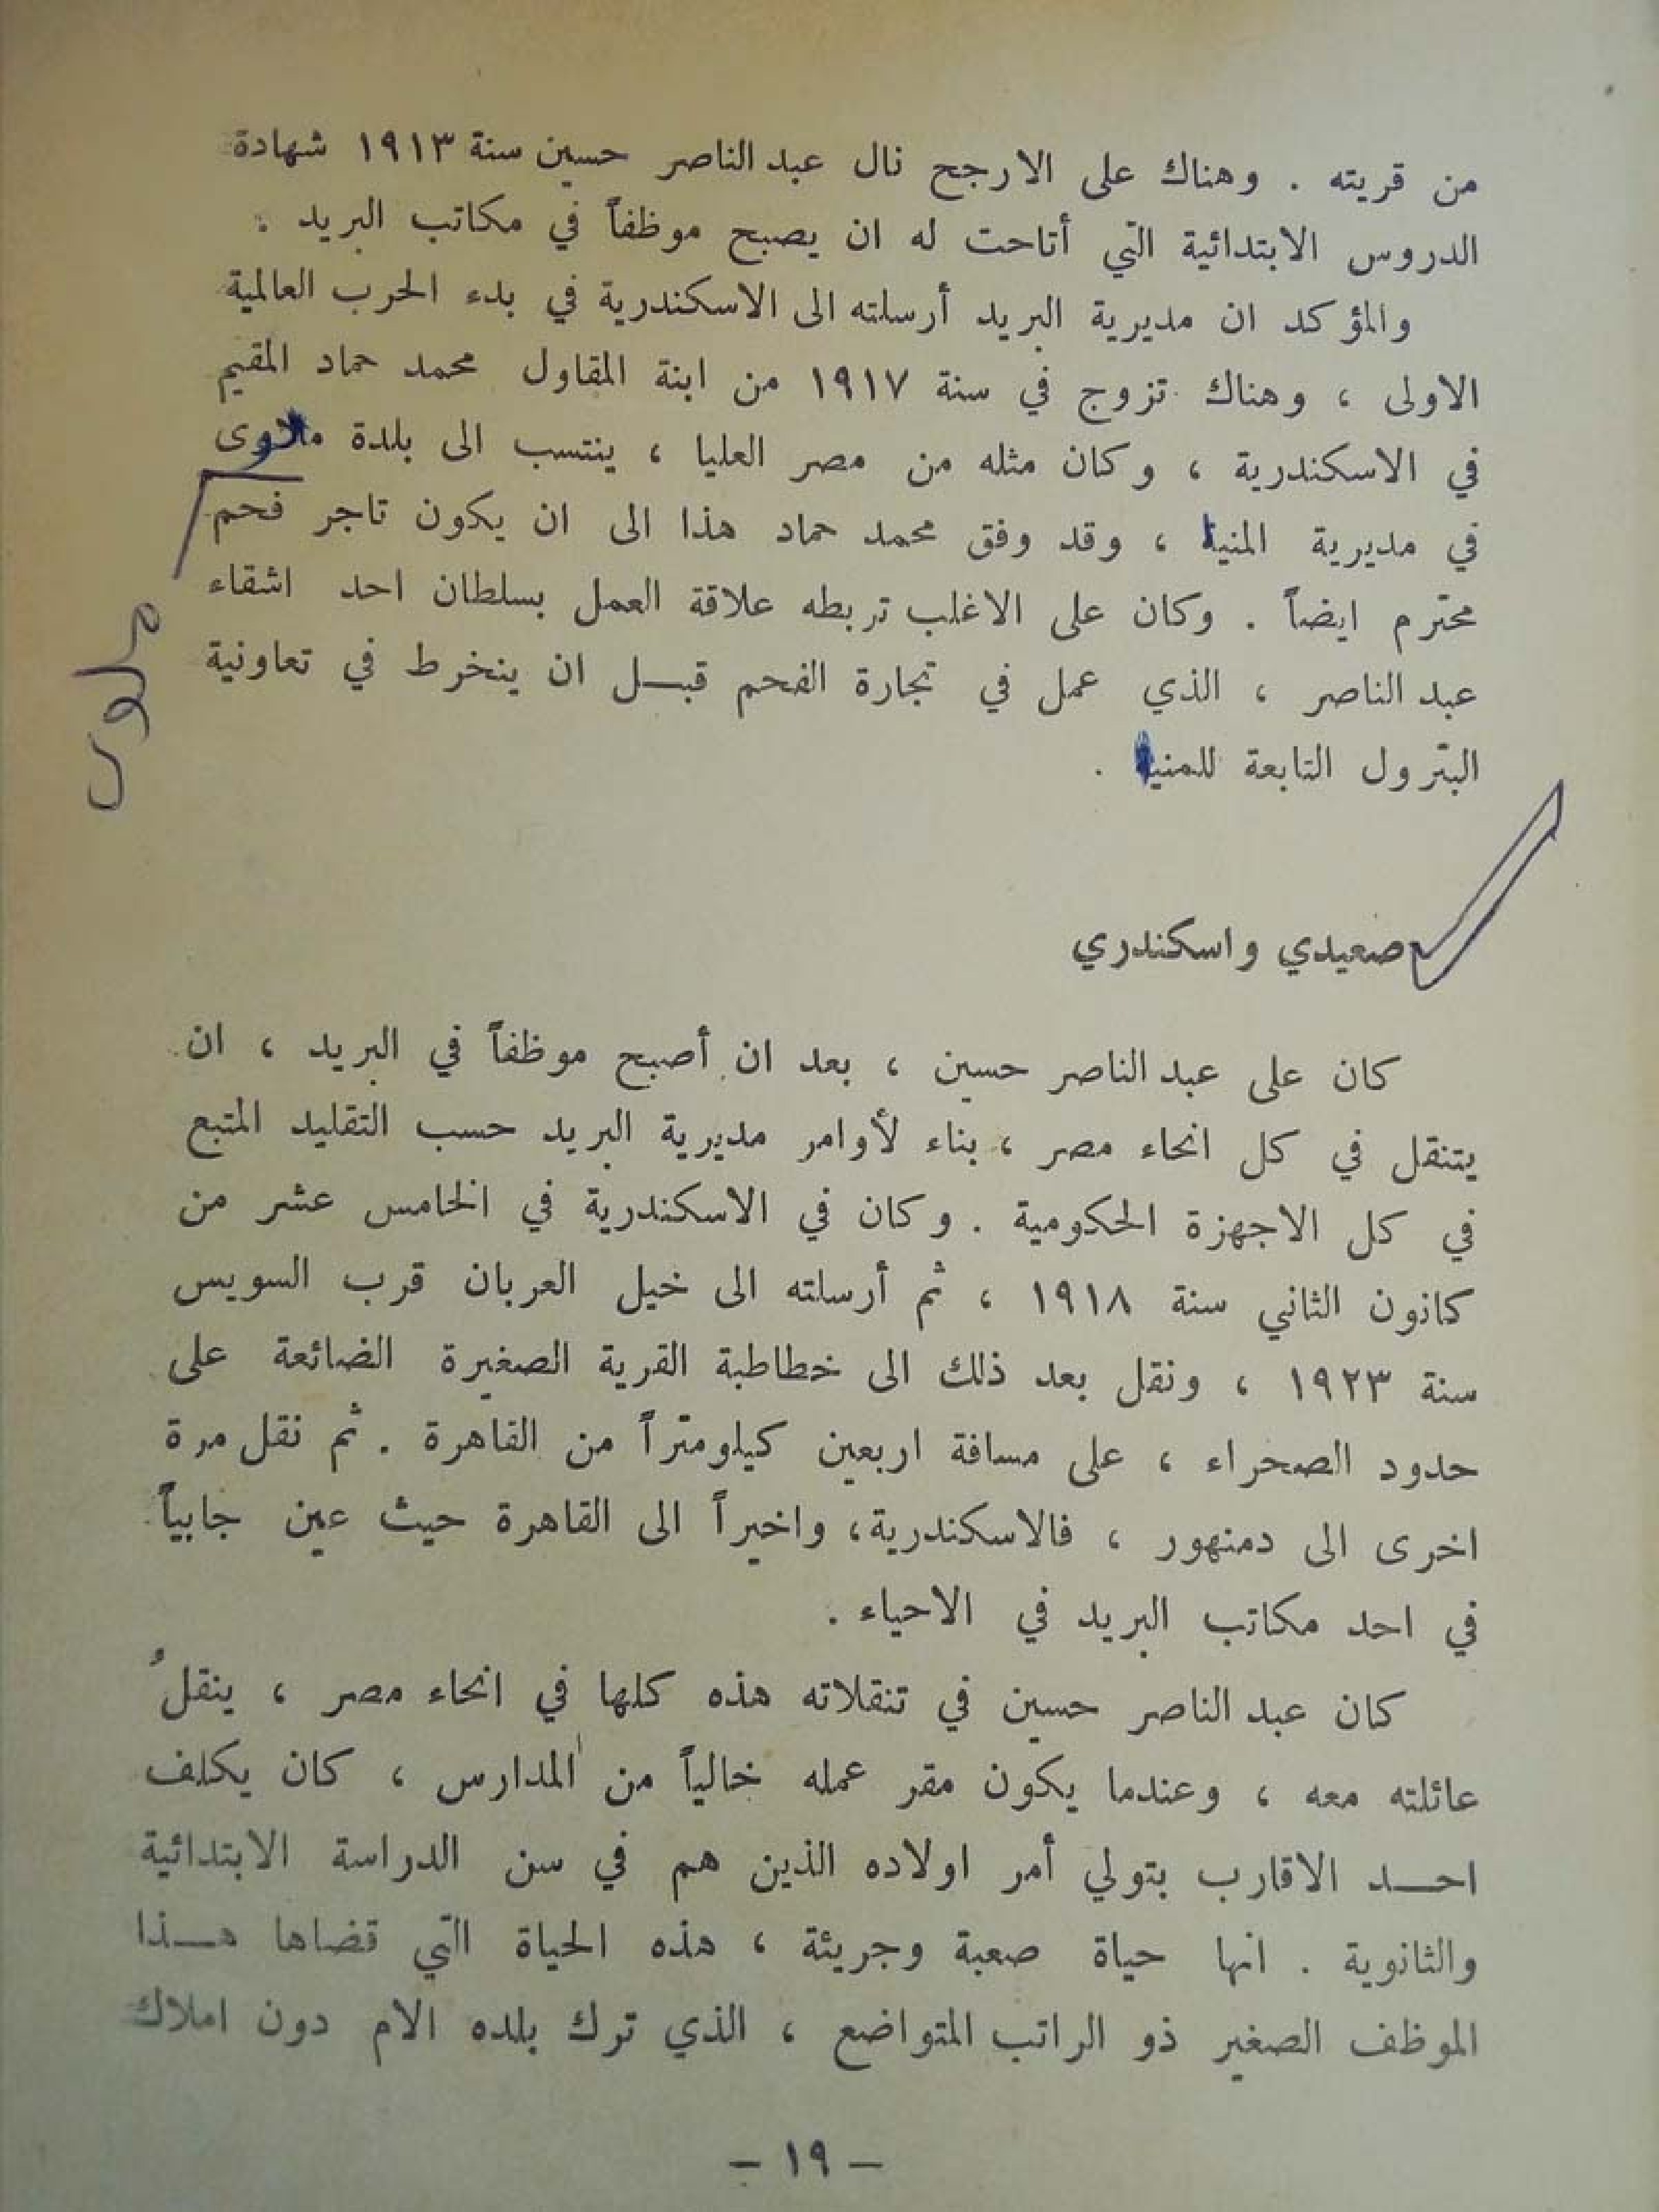 من قريته . وهناك على الارجح نال عبد الناصر حسين سنة ١٩١٣ شهادة
الدروس الابتدائية التي أتاحت له ان يصبح موظفاً في مكاتب البريد .
والمؤكد ان مديرية البريد أرسلته الى الاسكندرية في بدء الحرب العالمية
الاولى ، وهناك تزوج في سنة ١٩١٧ من ابنة المقاول محمد حماد المقيم
في الاسكندرية ، وكان مثله من مصر العليا ، ينتسب الى بلدة ملاوى
في مديرية المنيا ، وقد وفق محمد حماد هذا الى ان يكون تاجر فحم
محترم ايضاً . وكان على الاغلب تربطه علاقة العمل بسلطان احد اشقاء
عبد الناصر ، الذي عمل في تجارة الفحم قبـل ان ينخرط في تعاونية
البترول التابعة للمنيا .
صعيدي واسكندري
كان على عبد الناصر حسين ، بعد ان أصبح موظفاً في البريد ، ان
يتنقل في كل انحاء مصر ، بناء لأوامر مديرية البريد حسب التقليد المتبع
في كل الاجهزة الحكومية . وكان في الاسكندرية في الخامس عشر من
كانون الثاني سنة ١٩١٨ ، ثم أرسلته الى خيل العربان قرب السويس
سنة ١٩٢٣ ، ونقل بعد ذلك الى خطاطبة القرية الصغيرة الضائعة على
حدود الصحراء ، على مسافة اربعين كيلومتراً من القاهرة . ثم نقل مرة
اخرى الى دمنهور ، فالاسكندرية، واخيراً الى القاهرة حيث عين جابياً
في احد مكاتب البريد في الاحياء .
كان عبد الناصر حسين في تنقلاته هذه كلها في انحاء مصر ، ينقلُ
عائلته معه ، وعندما يكون مقر عمله خالياً من المدارس ، كان يكلف
احـد الاقارب بتولي أمر اولاده الذين هم في سن الدراسة الابتدائية
والثانوية . انها حياة صعبة وجريئة ، هذه الحياة التي قضاها هـذا
الموظف الصغير ذو الراتب المتواضع ، الذي ترك بلده الام دون املاك
– ١٩ –